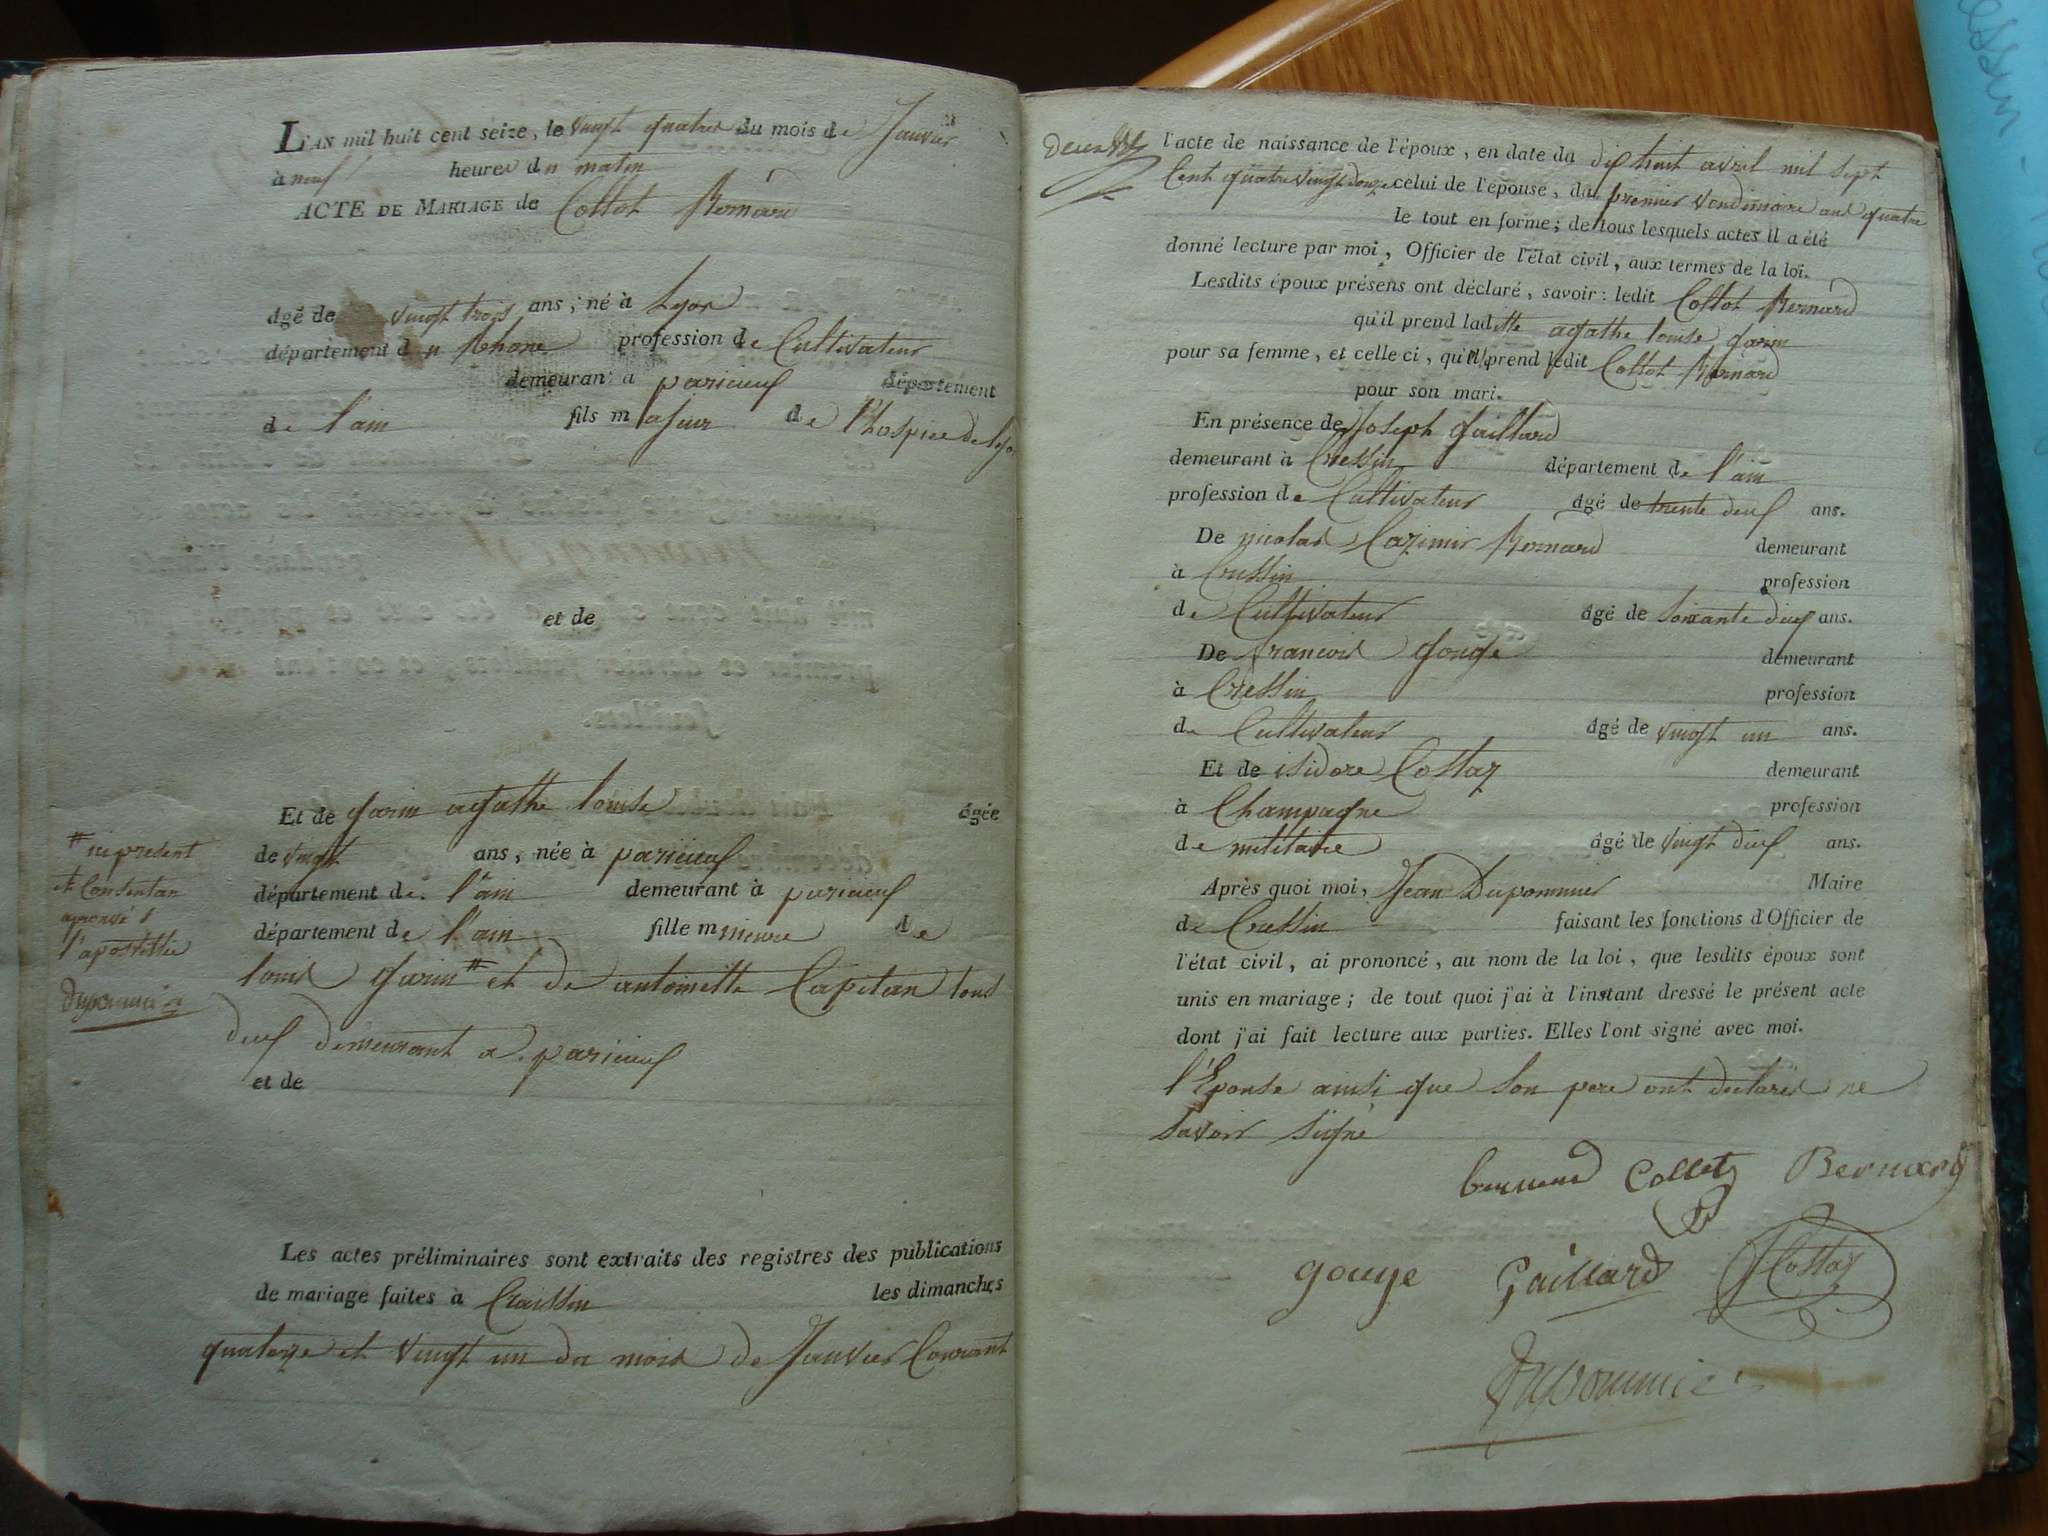 L'AN mil huit cent seize, le vingt quatre du mois de Janvier
à neuf heures du matin
ACTE DE MARIAGE de Collot Bernard
âgé de vingt trois ans; né à Lyon
département du Rhone profession de Cultivateur
demeurant à parieux département
de l'ain fils majeur de l'hospice de Lyon
et de
Et de garin agathe louise âgée
de vingt ans, née à parieux
département de l'ain demeurant à parieux
département de l'ain fille mineure de
louis garin # et de antoinette Capitan tous
deux demeurant a parieux
et de
# ici présent
et Consentan
aprouvé
l'apostille
Dupommier
Les actes préliminaires sont extraits des registres des publications
de mariage faites à Craissin les dimanches
quatorze et vingt un du mois de Janvier Courant
l'acte de naissance de l'époux, en date du dix huit avril mil sept
Cent quatre vingt douze celui de l'épouse, du premier vendimiaire and quatre
le tout en forme; de tous lesquels actes il a été
donné lecture par moi, Officier de l'état civil, aux termes de la loi.
Lesdits époux présens ont déclaré, savoir: ledit Collot Bernard
qu'il prend laditte agathe louise garin
pour sa femme, et celle ci, qu'elle prend ledit Collot Bernard
pour son mari.
En présence de Joseph gaillard
demeurant à Cressin département de l'ain
profession de Cultivateur âgé de trente deux ans.
De nicolas Cazimir Bernard demeurant
à Cressin profession
de Cultivateur âgé de soixante deux ans.
De francois gouge demeurant
à Cressin profession
de Cultivateur âgé de vingt un ans.
Et de isidore Costaz demeurant
à Champagne profession
de militaire âgé de vingt deux ans.
Après quoi moi, Jean Dupommier Maire
de Cressin faisant les fonctions d'Officier de
l'état civil, ai prononcé, au nom de la loi, que lesdits époux sont
unis en mariage; de tout quoi j'ai à l'instant dressé le présent acte
dont j'ai fait lecture aux parties. Elles l'ont signé avec moi.
l'Epouse ainsi que son pere ont declarés ne
savoir signé
bernard Collet Bernard
gouge Gaillard J Costaz
Dupommier